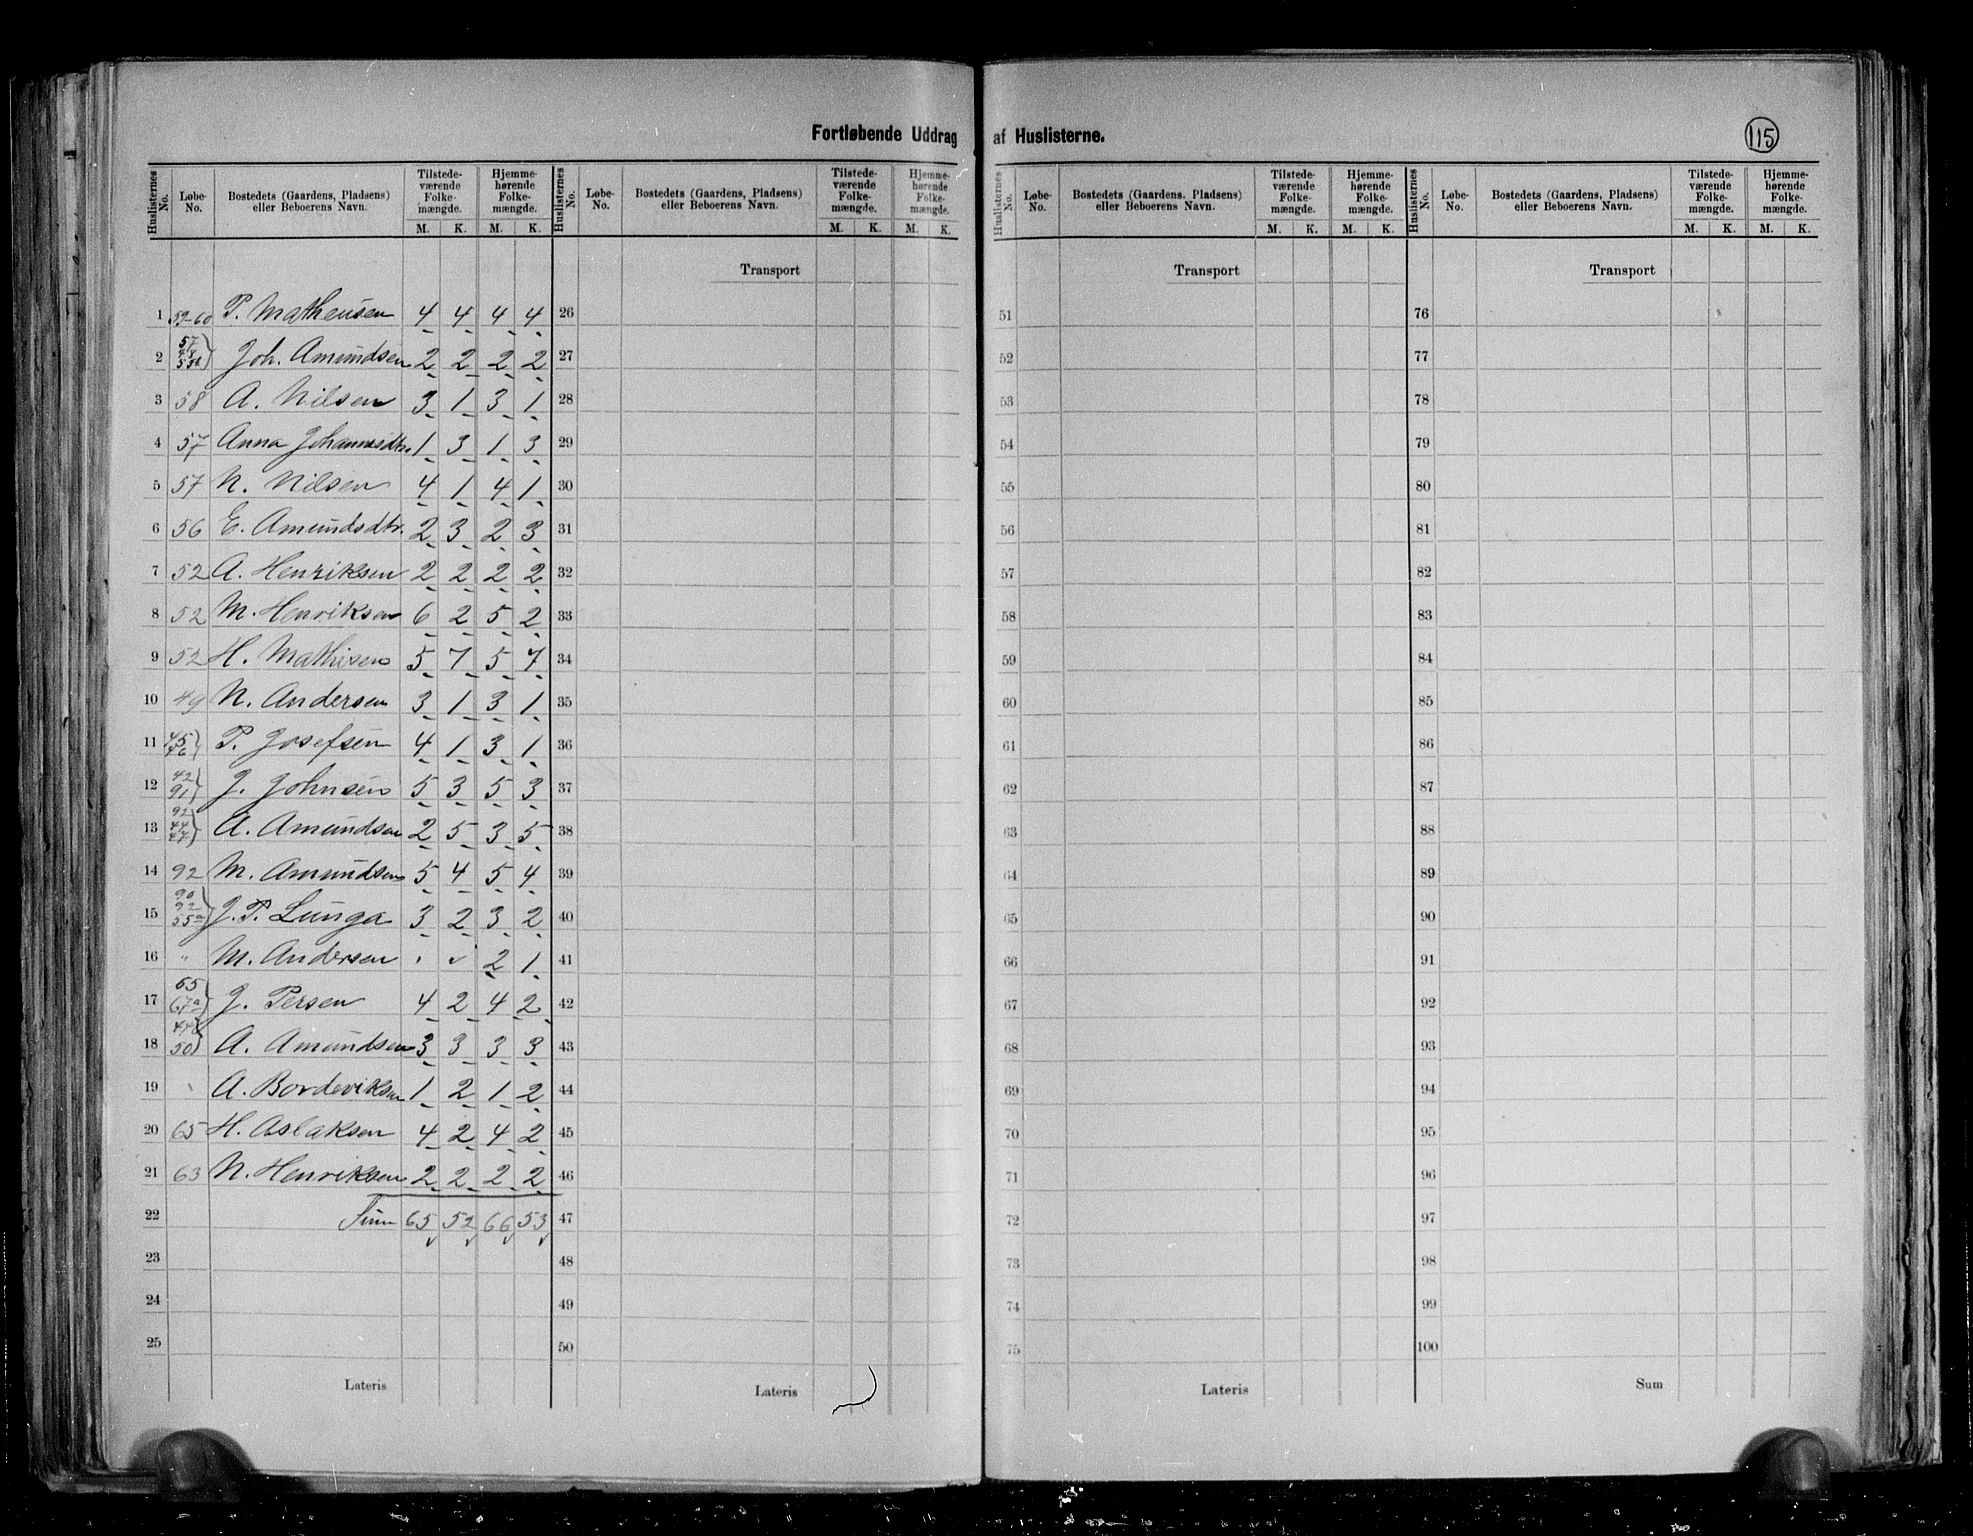 Fortløbende Uddrag af Huslisterne.
115
Huslisternes No. Løbe-No. Bostedets (Gaardens, Pladsens) eller Beboerens Navn. Tilstedeværende Folkemængde. M. K. Hjemmehørende Folkemængde. M. K.
Huslisternes No. Løbe-No. Bostedets (Gaardens, Pladsens) eller Beboerens Navn. Tilstedeværende Folkemængde. M. K. Hjemmehørende Folkemængde. M. K.
Huslisternes No. Løbe-No. Bostedets (Gaardens, Pladsens) eller Beboerens Navn. Tilstedeværende Folkemængde. M. K. Hjemmehørende Folkemængde. M. K.
Huslisternes No. Løbe-No. Bostedets (Gaardens, Pladsens) eller Beboerens Navn. Tilstedeværende Folkemængde. M. K. Hjemmehørende Folkemængde. M. K.
Transport Transport Transport
1 59-60 P. Matheusen 4 4 4 4 26 51 76
2 57 Joh. Amundsen 2 2 2 2 27 52 77
3 58 A. Nilsen 3 1 3 1 28 53 78
4 57 Anna Johannesdtr. 1 3 1 3 29 54 79
5 57 N. Nilsen 4 1 4 1 30 55 80
6 56 E. Amundsdtr. 2 3 2 3 31 56 81
7 52 A. Henriksen 2 2 2 2 32 57 82
8 52 M. Henriksen 6 2 5 2 33 58 83
9 52 H. Mathisen 5 7 5 7 34 59 84
10 49 N. Andersen 3 1 3 1 35 60 85
11 45 46 P. Josefsen 4 1 3 1 36 61 86
12 42 91 J. Johnsen 5 3 5 3 37 62 87
13 92 44 47 A. Amundsen 2 5 3 5 38 63 88
14 92 M. Amundsen 5 4 5 4 39 64 89
15 90 92 55a J. P. Lunga 3 2 3 2 40 65 90
16 " M. Andersen 2 1 41 66 91
17 65 67a J. Persen 4 2 4 2 42 67 92
18 50 A. Amundsen 3 3 3 3 43 68 93
19 A. Bordeviksen 1 2 1 2 44 69 94
20 65 H. Aslaksen 4 2 4 2 45 70 95
21 63 N. Henriksen 2 2 2 2 46 71 96
22 Sum 65 52 66 53 47 72 97
23 48 73 98
24 49 74 99
25 50 75 100
Lateris Lateris Lateris Sum